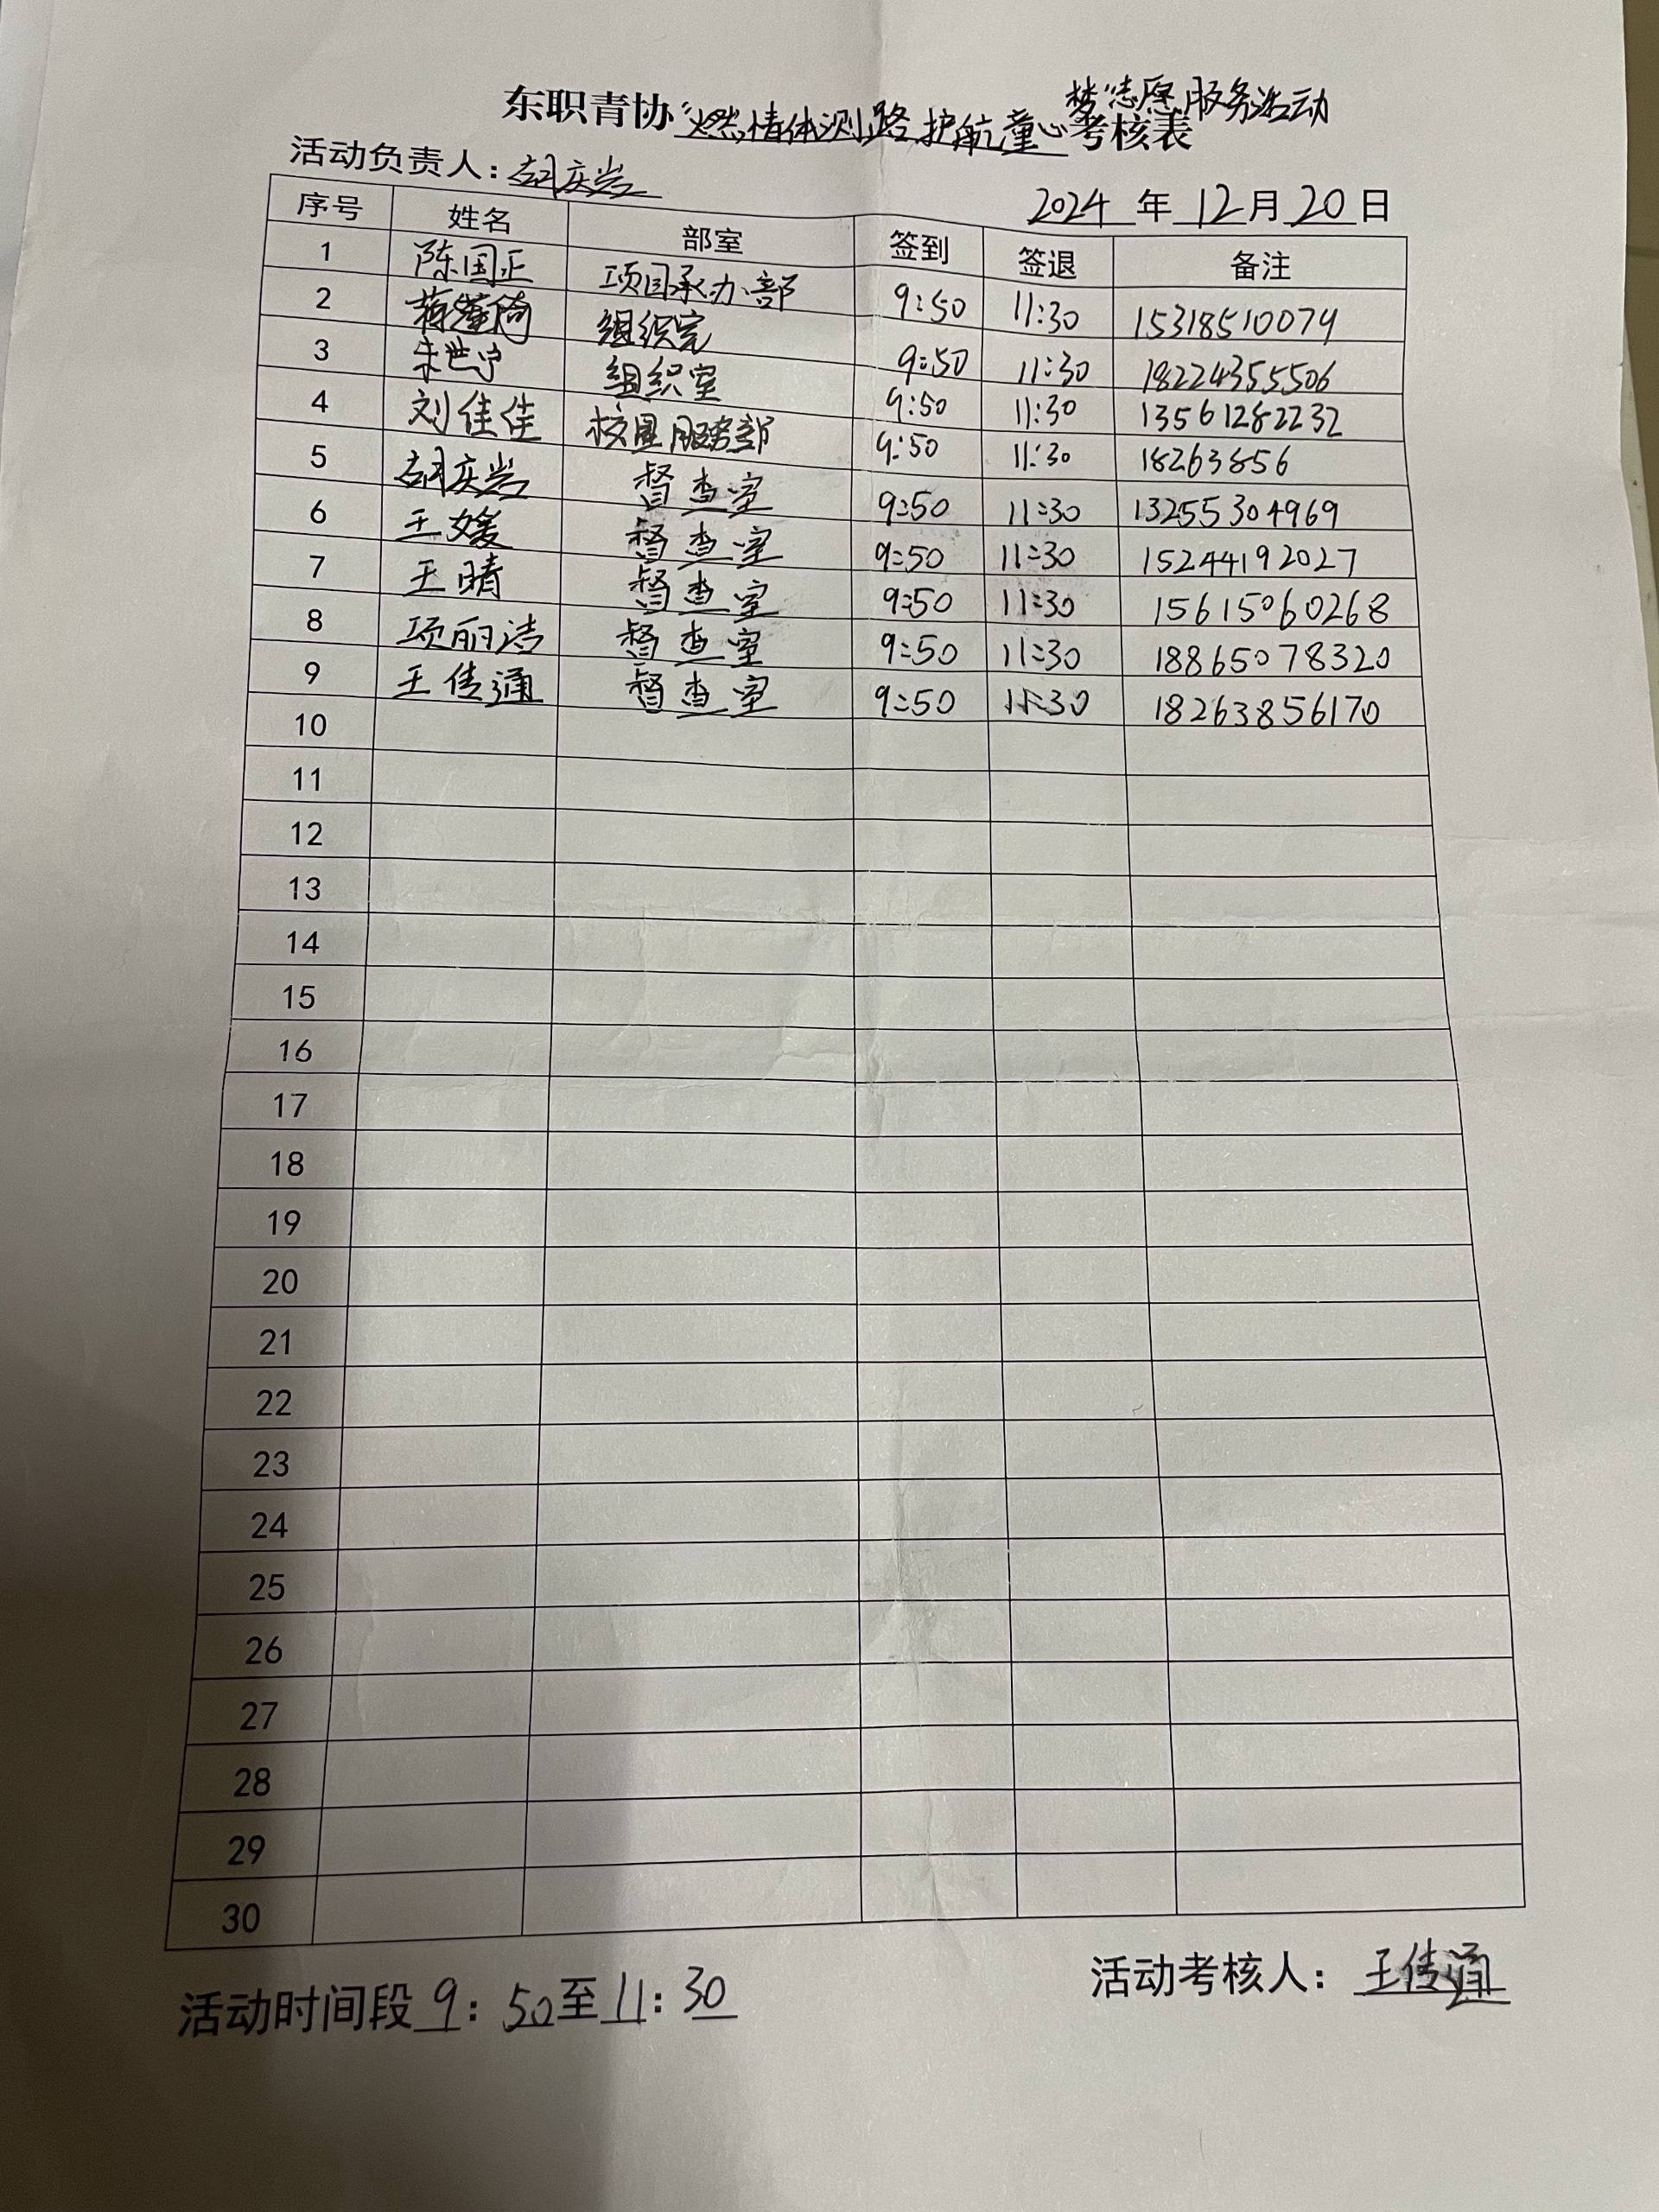 东职青协“燃情体测路,护航童心梦”志愿服务活动考核表
活动负责人：胡庆岩
2024 年 12 月 20 日
序号 姓名 部室 签到 签退 备注
1 陈国正 项目承办部 9:50 11:30 15318510074
2 组织室 9:50 11:30 18224355506
3 朱世宁 组织室 9:50 11:30 13561282232
4 刘佳佳 校园服务部 9:50 11:30 18263856
5 胡庆岩 督查室 9:50 11:30 13255304969
6 王媛 督查室 9:50 11:30 15244192027
7 王晴 督查室 9:50 11:30 15615060268
8 项丽洁 督查室 9:50 11:30 18865078320
9 王传通 督查室 9:50 11:30 18263856170
10
11
12
13
14
15
16
17
18
19
20
21
22
23
24
25
26
27
28
29
30
活动时间段 9：50 至 11：30
活动考核人：王传通